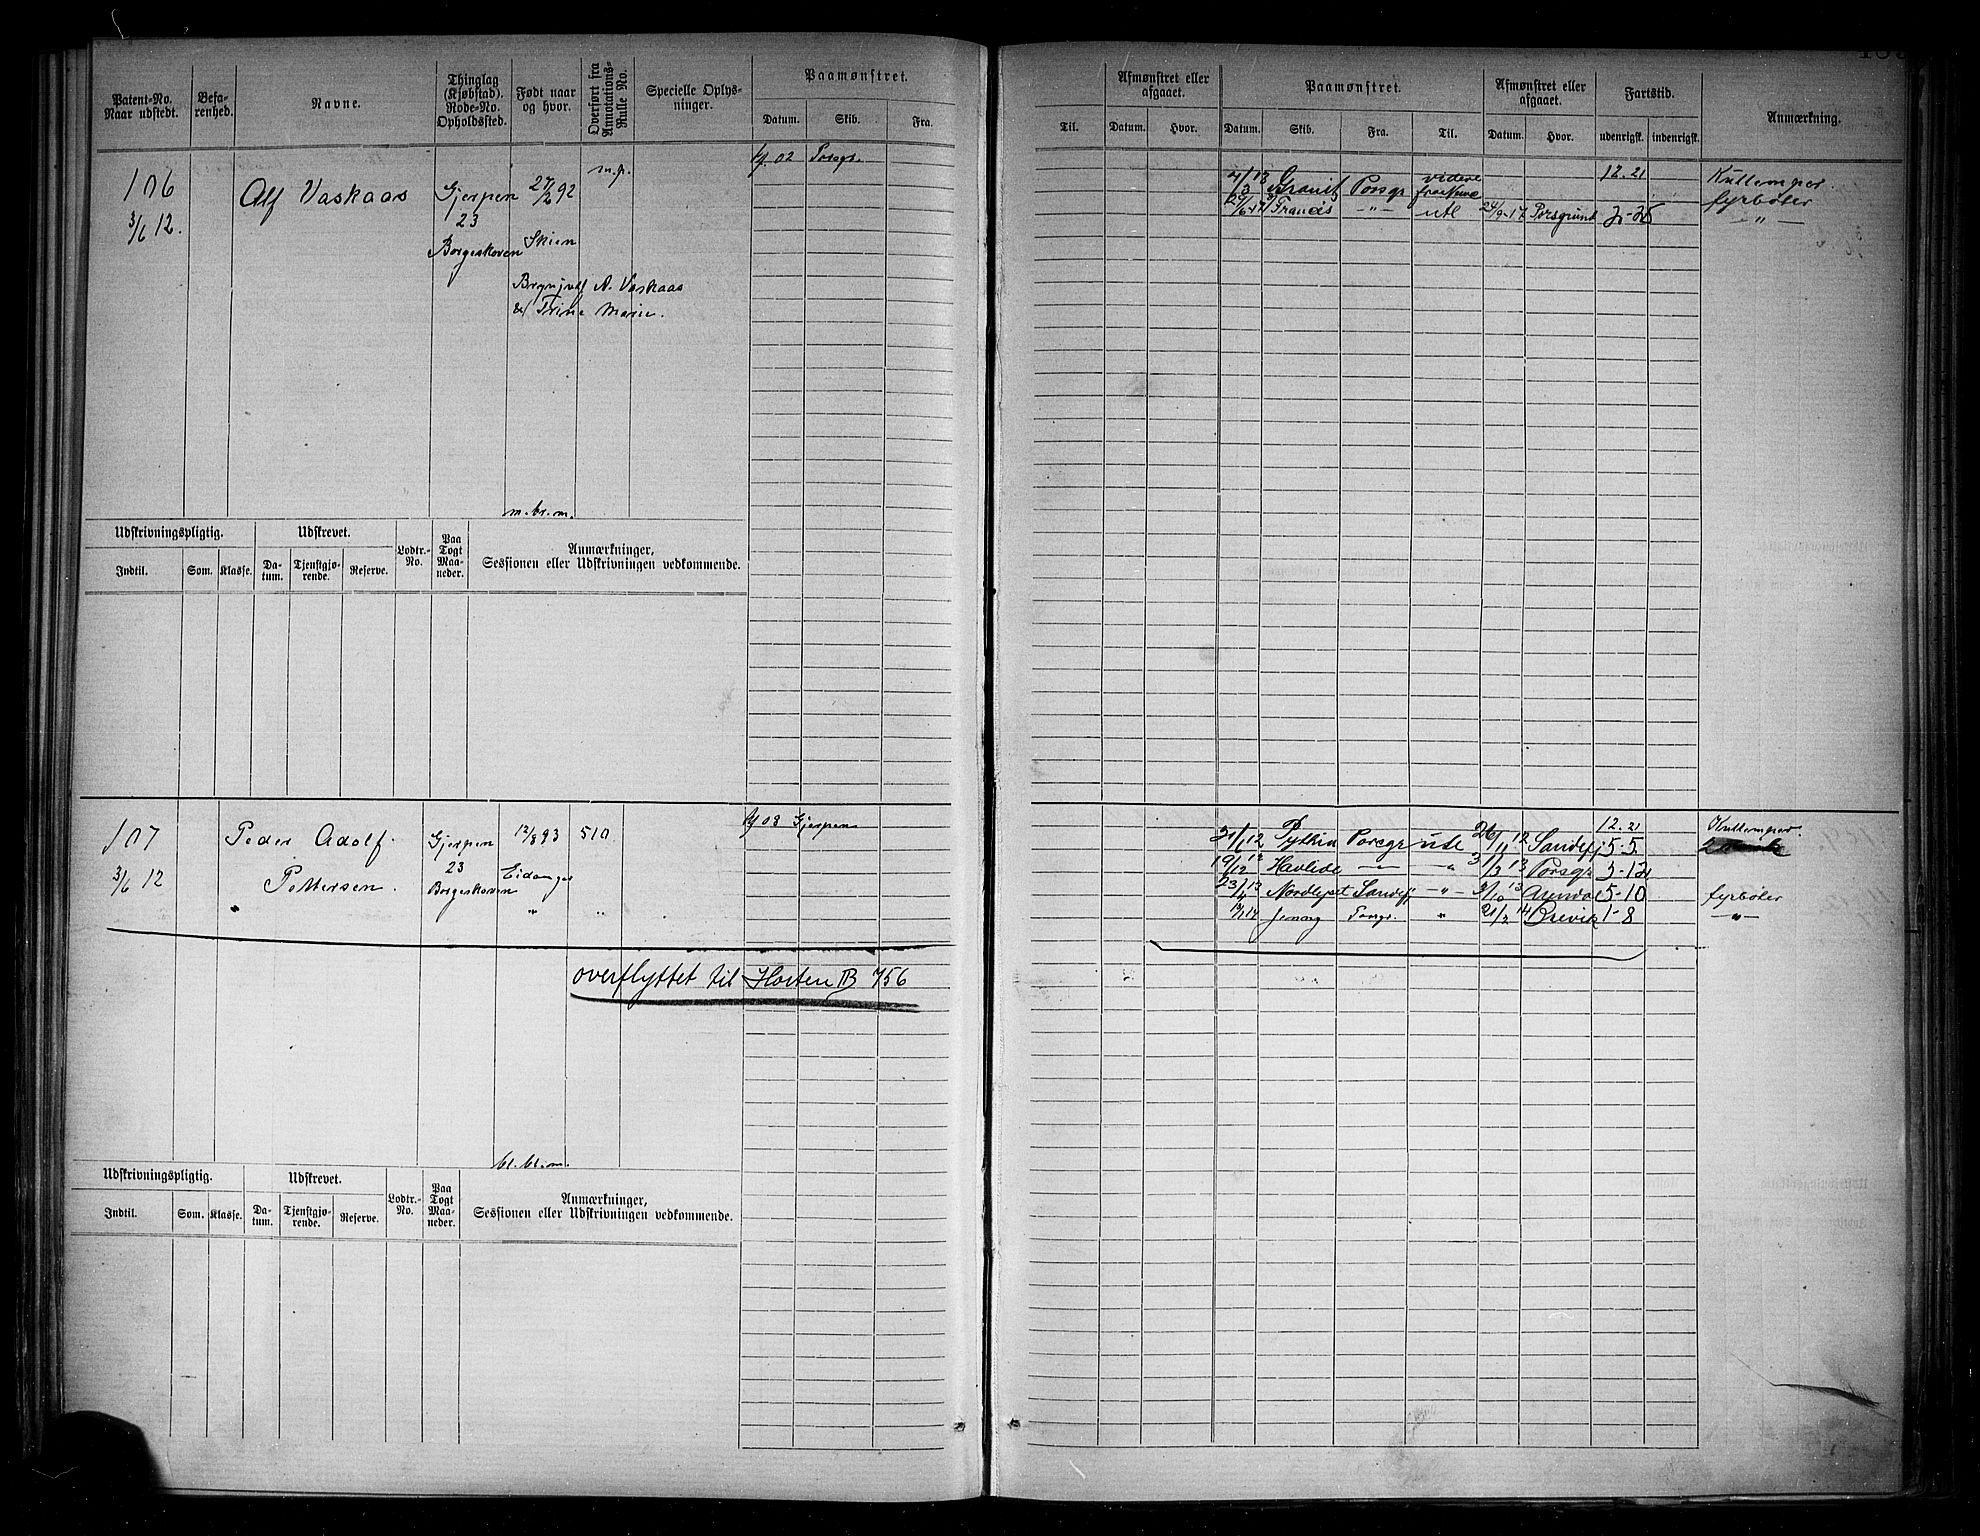 Patent-No. Naar udstedt.
Befarenhed.
Navne.
Thinglag (Kjøbstad). Rode-No. Opholdssted.
Født naar og hvor.
Overført fra Annotations-Rulle No.
Specielle Oplysninger.
Paamønstret.
Datum. Skib. Fra.
106
3/6 12.
Alf Vaskaas
Gjerpen
23
Borgeskoven
27/2 92
Skien
m.p.
02 Porsgr.
Brynjulf A. Vaskaas
& Trine Marie.
m.br.m.
Udskrivningspligtig. Udskrevet. Lodtr.-No. Paa Togt Maaneder. Anmærkninger, Sessionen eller Udskrivningen vedkommende.
Indtil. Som. Klasse. Datum. Tjenstgjørende. Reserve.
107
3/6 12
Peder Adolf
Pettersen.
Gjerpen
23
Borgeskoven
12/8 93
Eidanger
510
08 Gjerpen
overflyttet til Horten B 756
bl.bl.m.
Udskrivningspligtig. Udskrevet. Lodtr.-No. Paa Togt Maaneder. Anmærkninger, Sessionen eller Udskrivningen vedkommende.
Indtil. Som. Klasse. Datum. Tjenstgjørende. Reserve.
Til.
Afmønstret eller afgaaet.
Datum. Hvor.
Paamønstret.
Datum. Skib. Fra. Til.
Afmønstret eller afgaaet.
Datum. Hvor.
Fartstid.
udenrigsk. indenrigsk.
Anmærkning.
Granit Porsgr videre 12.21 Kullemper.
Francis -"- utl 24/9-17 Porsgrund fyrbøter
-"-
12.21 Kullemper.
Pythia Porsgr utl 12 Sandefj 5-5.
19/12 12 Havlide -"- 3/3 13 Porsgr 3-12
23/4 13 Nordlyset Sandefj -"- 13 Arendal 5-10 fyrbøter
Porsgr. " 21/2 14 Brevik 1-8 -"-